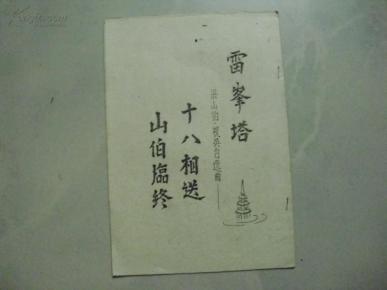 雷峯塔
梁山伯·祝英台选曲
十八相送
山伯臨終